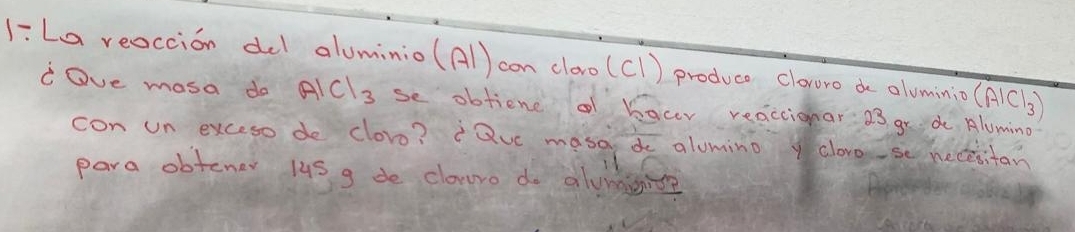 1-: La reacción del aluminio (Al) con cloro (Cl) produce cloruro de aluminio (AlCl3)
¿Que masa de AlCl3 se obtiene al hacer reaccionar 23 gr de Alumino
con un exceso de cloro? ¿Que masa de alumino y cloro se necesitan
para obtener 145 g de cloruro de aluminio?